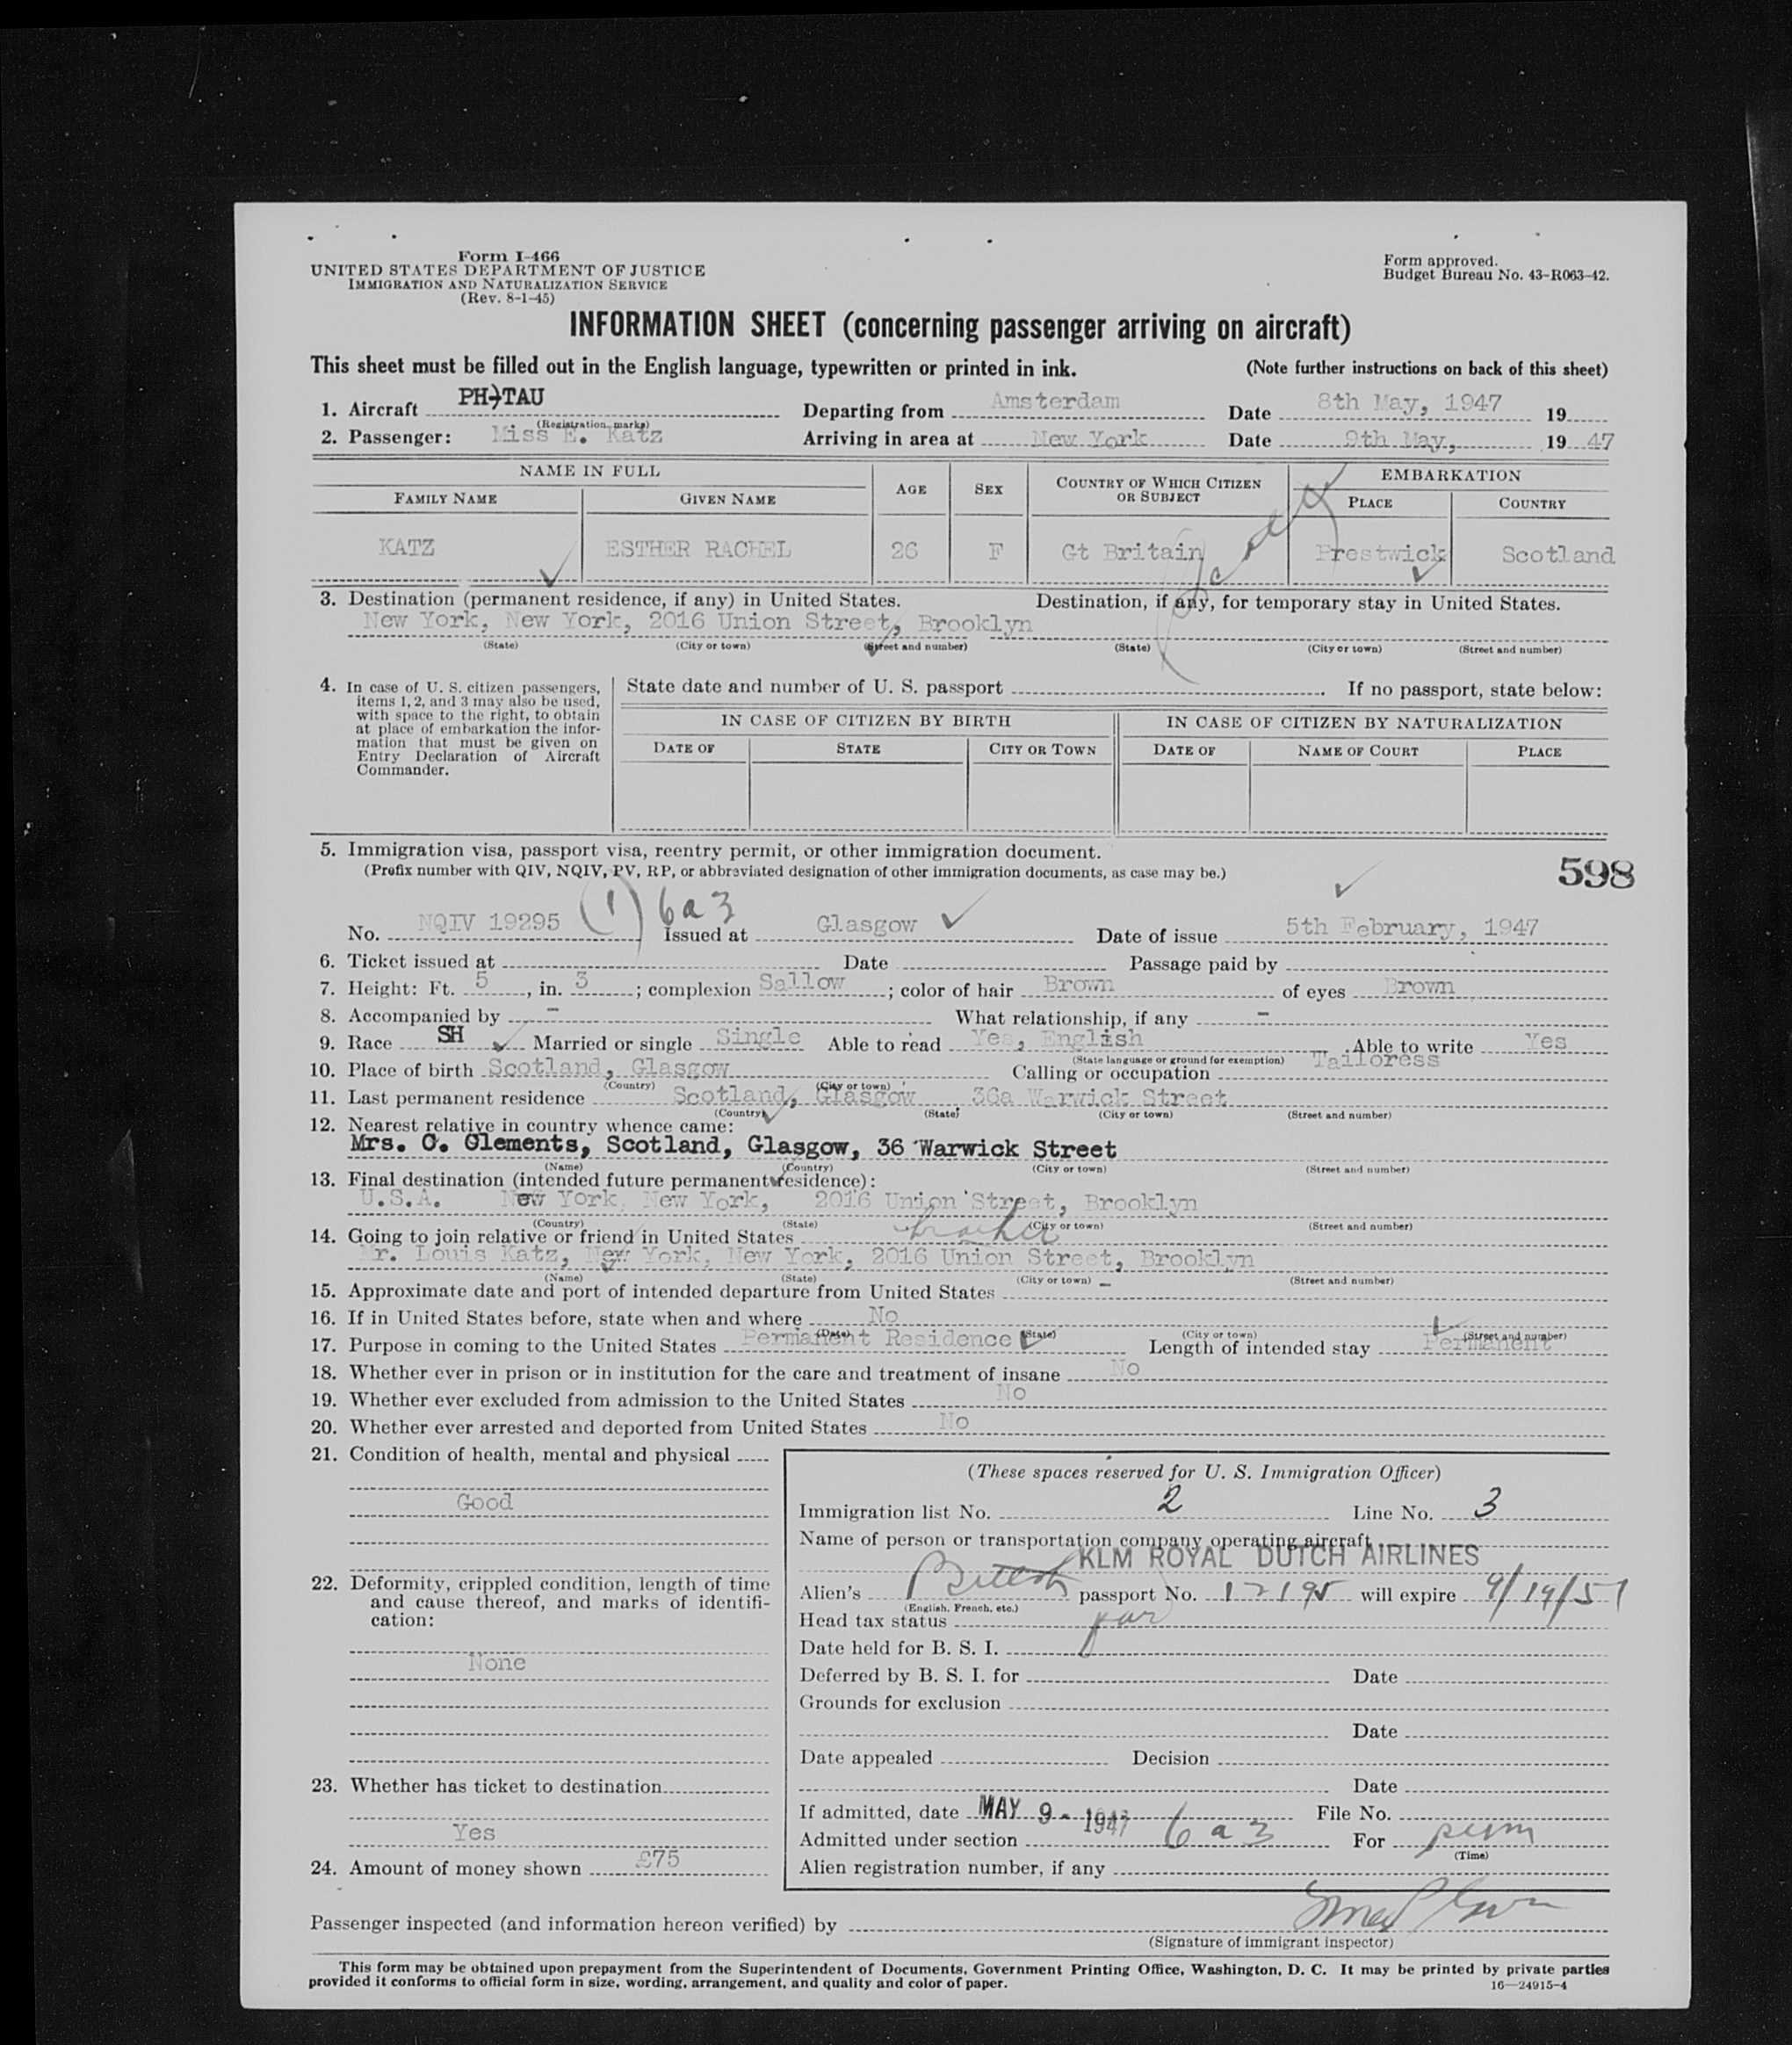 Form I-466
UNITED STATES DEPARTMENT OF JUSTICE
IMMIGRATION AND NATURALIZATION SERVICE
(Rev. 8-1-45)
Form approved.
Budget Bureau No. 43-R063-42.
INFORMATION SHEET (concerning passenger arriving on aircraft)
This sheet must be filled out in the English language, typewritten or printed in ink. (Note further instructions on back of this sheet)
1. Aircraft PH-TAU Departing from Amsterdam Date 8th May, 1947 19
(Registration marks)
2. Passenger: Miss E. Katz Arriving in area at New York Date 9th May, 19 47
NAME IN FULL AGE SEX COUNTRY OF WHICH CITIZEN OR SUBJECT EMBARKATION
FAMILY NAME GIVEN NAME PLACE COUNTRY
KATZ ESTHER RACHEL 26 F Gt Britain Prestwick Scotland
3. Destination (permanent residence, if any) in United States. Destination, if any, for temporary stay in United States.
New York, New York, 2016 Union Street, Brooklyn
(State) (City or town) (Street and number) (State) (City or town) (Street and number)
4. In case of U. S. citizen passengers, items 1, 2, and 3 may also be used, with space to the right, to obtain at place of embarkation the information that must be given on Entry Declaration of Aircraft Commander.
State date and number of U. S. passport . If no passport, state below:
IN CASE OF CITIZEN BY BIRTH IN CASE OF CITIZEN BY NATURALIZATION
DATE OF STATE CITY OR TOWN DATE OF NAME OF COURT PLACE
5. Immigration visa, passport visa, reentry permit, or other immigration document.
(Prefix number with QIV, NQIV, PV, RP, or abbreviated designation of other immigration documents, as case may be.)
598
(1) 6a3
No. NQIV 19295 Issued at Glasgow Date of issue 5th February, 1947
6. Ticket issued at Date Passage paid by
7. Height: Ft. 5, in. 3; complexion Sallow; color of hair Brown of eyes Brown
8. Accompanied by - What relationship, if any -
9. Race SH Married or single Single Able to read Yes, English Able to write Yes
(State language or ground for exemption)
10. Place of birth Scotland, Glasgow Calling or occupation Tailoress
(Country) (City or town)
11. Last permanent residence Scotland, Glasgow 36a Warwick Street
(Country) (State) (City or town) (Street and number)
12. Nearest relative in country whence came:
Mrs. C. Clements, Scotland, Glasgow, 36 Warwick Street
(Name) (Country) (City or town) (Street and number)
13. Final destination (intended future permanent residence):
U.S.A. New York, New York, 2016 Union Street, Brooklyn
(Country) (State) (City or town) (Street and number)
14. Going to join relative or friend in United States brother
Mr. Louis Katz, New York, New York, 2016 Union Street, Brooklyn
(Name) (State) (City or town) (Street and number)
15. Approximate date and port of intended departure from United States -
16. If in United States before, state when and where No
(Date) (State) (City or town) (Street and number)
17. Purpose in coming to the United States Permanent Residence Length of intended stay Permanent
18. Whether ever in prison or in institution for the care and treatment of insane No
19. Whether ever excluded from admission to the United States No
20. Whether ever arrested and deported from United States No
21. Condition of health, mental and physical
Good
22. Deformity, crippled condition, length of time and cause thereof, and marks of identification:
None
23. Whether has ticket to destination
Yes
24. Amount of money shown £75
(These spaces reserved for U. S. Immigration Officer)
Immigration list No. 2 Line No. 3
Name of person or transportation company operating aircraft
KLM ROYAL DUTCH AIRLINES
Alien's British passport No. 12195 will expire 9/19/51
(English, French, etc.)
Head tax status
Date held for B. S. I.
Deferred by B. S. I. for Date
Grounds for exclusion
Date
Date appealed Decision
Date
If admitted, date MAY 9 - 1947 File No.
Admitted under section 6a3 For perm
(Time)
Alien registration number, if any
Passenger inspected (and information hereon verified) by
(Signature of immigrant inspector)
This form may be obtained upon prepayment from the Superintendent of Documents, Government Printing Office, Washington, D. C. It may be printed by private parties
provided it conforms to official form in size, wording, arrangement, and quality and color of paper. 16—24915-4